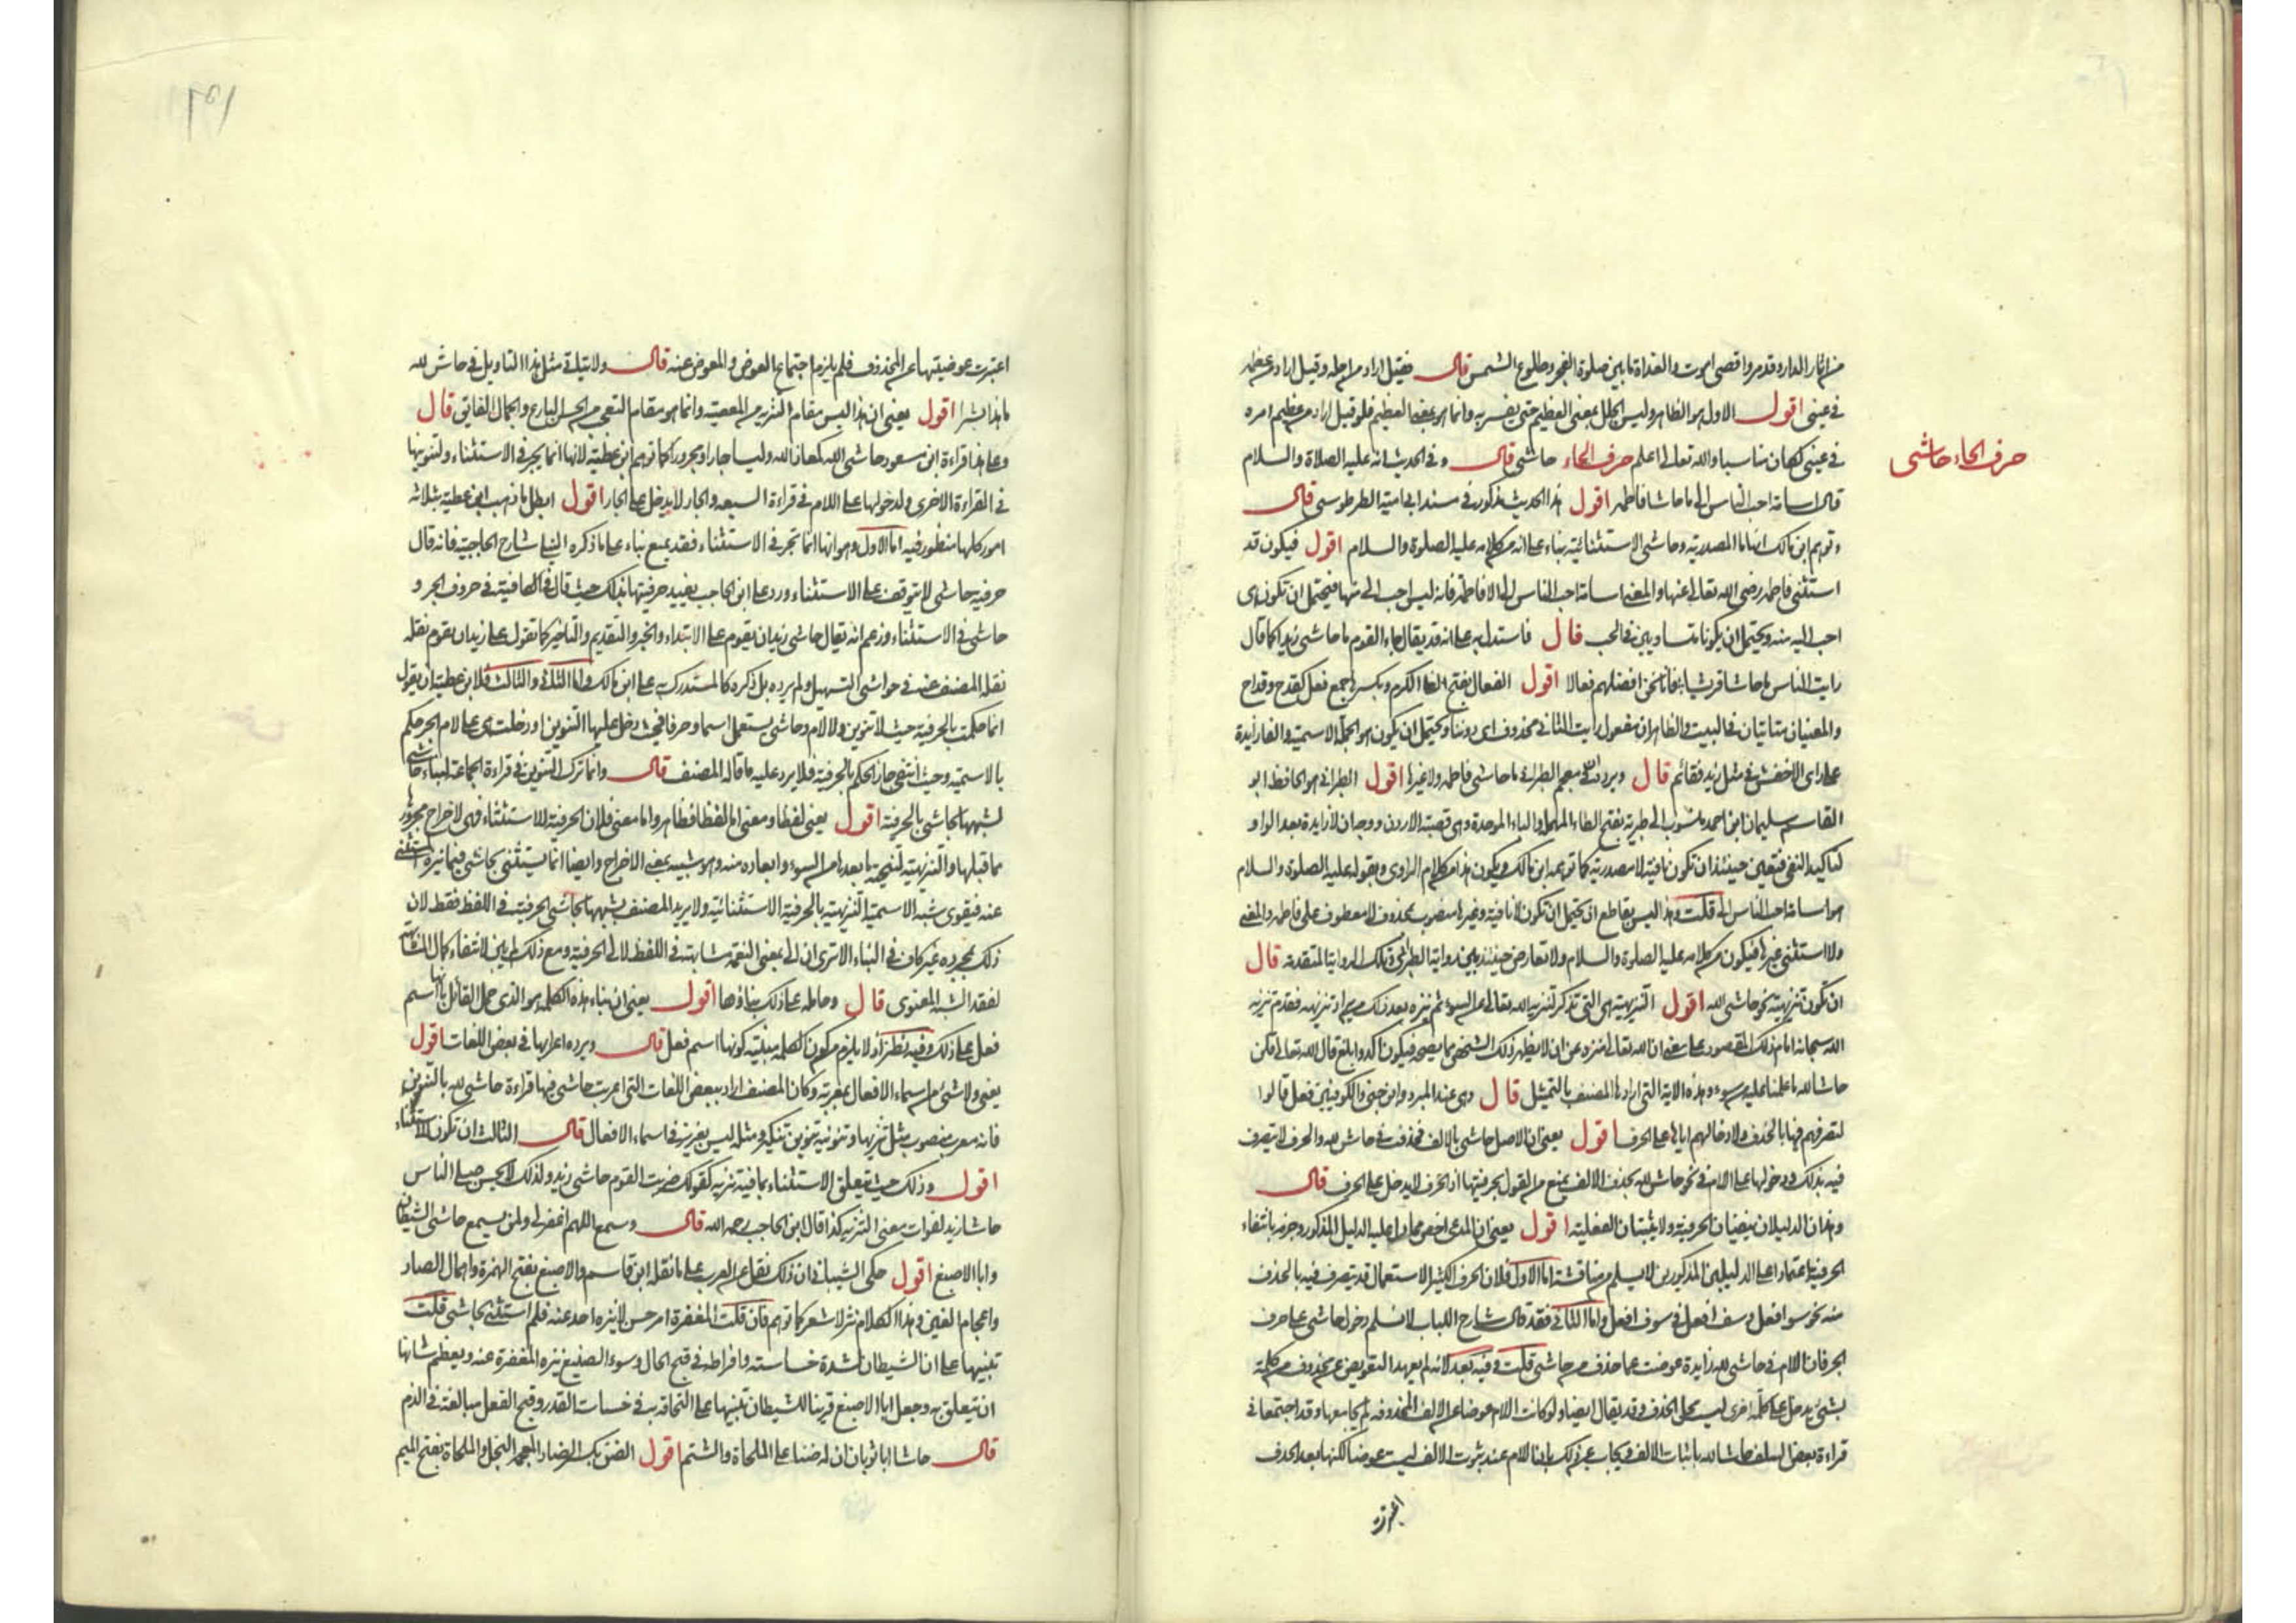 من آثار الدار وقدمر واقصى اموت والغداة ما بين صلوة الفجر وطلوع الشمس قال فقيل اراد من اجله وقيل اراد من عظمه
في عيني اقول الاول هو الظاهر وليس الجلل بمعنى العظيم حتى يفسر به وانما هو بمعنى العظيم فلو قيل اراد من عظيم امره
في عيني لكان مناسبا والله تعالى اعلم حرف الحاء حاشى قال وفي الحديث انه عليه الصلاة والسلام
حرف الحاء حاشى
قال اسامة احب الناس الى ما حاشا فاطمه اقول هذا الحديث مذكور في مسند ابي امية الطرطوسي قال
وتوهم ابن مالك انها ما المصدرية وحاشى الاستثنائية بناء على انه من كلامه عليه الصلوة والسلام اقول فيكون قد
استثنى فاطمه رضى الله تعالى عنها والمعنى اسامة احب الناس الى الا فاطمة فانه ليس احب الى منها فيحتمل ان تكون هى
احب اليه منه ويحتمل ان يكونا متساويين في الحب قال فاستدل به على انه قد يقال جاء القوم ما حاشى زيدا كما قال
رايت الناس ما حاشا قريشا فانا نحن افضلهم فعالا اقول الفعال بفتح الفا الكرم وبكسرها جمع فعل كقدح وقداح
والمعنيان متاتيان في البيت والظاهر ان مفعول رايت الثاني محذوف اى دوننا ويحتمل ان يكون هو الجملة الاسمية والفا زايدة
على راى الاخفش في مثل زيد فقائم قال ويرده ان في معجم الطبراني ما حاشى فاطمه ولا غيرها اقول الطبراني هو الحافظ ابو
القاسم سليمان ابن احمد منسوب الى طبرية بفتح الطاء المهملة والباء الموحدة وهى قصبة الاردن ووجهه ان لا زايدة بعد الواو
لتاكيد النفى فتعين حينئذ ان تكون ما نافية لا مصدرية كما توهمه ابن مالك ويكون هذا من كلام الراوى ويقوله عليه الصلوة والسلام
هو اسامة احب الناس الى قلت وهذا ليس بقاطع اذ يحتمل ان تكون لا نافية وغيرها منصوب بمحذوف لا معطوف على فاطمه والمعنى
ولا استثنى غيرها فيكون من كلامه عليه الصلوة والسلام ولا تعارض حينئذ بين رواية الطبراني وتلك الرواية المتقدمة قال
ان تكون تنزيهية نحو حاشى الله اقول التنزيهية هى التى تذكر لتنزيه الله تعالى عن السوء ثم تنزه بعد ذلك من يراد تنزيهه فقدم تنزيه
الله سبحانه امام ذلك المقصود على معنى ان الله تعالى منزه عن ان لا يطهر ذلك الشخص مما يصمه فيكون آكد وابلغ قال الله تعالى قلن
حاشا لله ما علمنا عليه من سوء وهذه الاية التى ارادها المصنف بالتمثيل قال وهى عند المبرد وابن جنى والكوفيين فعل قالوا
لتصرفهم فيها بالحذف ولادخالهم اياها على الحرف اقول يعنى ان الاصل حاشى بالالف فحذفت في حاش لله والحرف لا يتصرف
فيه بذلك ودخولها على اللام في نحو حاش لله بحذف الالف يمنع من القول بحرفيتها اذ الحرف لا يدخل على الحرف قال
وهذان الدليلان ينفيان الحرفية ولا يثبتان الفعلية اقول يعنى ان المدعى اخص مما دل عليه الدليل المذكور وجزمه بانتفاء
الحرفية اعتمادا على الدليلين المذكورين لا يسلم من مناقشة اما الاول فلان الحرف الكثير الاستعمال قد يتصرف فيه بالحذف
منه نحو سو افعل وسف افعل في سوف افعل واما الثاني فقد قال شارح اللباب لا نسلم دخول حاشى على حرف
الجر فان اللام في حاشى لله زايدة عوضت عما حذف من حاشى قلت وفيه بعد لانه لم يعهد التعويض عن محذوف من كلمة
بشئ يدخل على كلمة اخرى ليست محل الحذف وقد يقال ايضا ولو كانت اللام عوضا عن الالف المحذوفه لم يجامعها وقد اجتمعا في
قراءة بعض السلف حاشا لله باثبات الالف ويجاب عن ذلك بان اللام عند ثبوت الالف ليست عوضا لكنها بعد الحذف
اعتبرت
اعتبرت عوضيتها عن المحذوف فلم يلزم اجتماع العوض والمعوض عنه قال ولا يتاتى مثل هذا التاويل في حاش لله
ما هذا بشرا اقول يعنى ان هذا ليس مقام التنزيه من المعصية وانما هو مقام التعجب من الحسن البارع والجمال الفائق قال
وعلى هذا قراءة ابن مسعود حاشى الله كمعاذ الله وليسا جارا ومجرورا كما توهم ابن عطيه لانها انما يجر في الاستثناء ولتنوينها
في القراءة الاخرى ولدخولها على اللام في قراءة السبعه والجار لا يدخل على الجار اقول ابطل ما ذهب ابن عطيه بثلاثه
امور كلها منظور فيه اما الاول وهو انها انما تجر في الاستثناء فقد يمنع بناء على ما ذكره النيلى شارح الحاجبية فانه قال
حرفيه حاشى لا تتوقف على الاستثناء ورد على ابن الحاجب تقييد حرفيتها بذلك حيث قال في الكافية في حروف الجر و
حاشى في الاستثناء وزعم انه يقال حاشى زيد ان يقوم على الابتداء والخبر والتقديم والتاخير كما تقول على زيد ان يقوم نقله
نقله المصنف عنه في حواشى التسهيل ولم يرده بل ذكره كالمستدرك به على ابن مالك واما الثاني والثالث فلابن عطية ان يقول
انما حكمت بالحرفية حيث لا تنوين ولا لام وحاشى يستعمل اسما وحرفا فحيث دخل عليها التنوين او دخلت هى على لام الجر حكم
بالاسمية وحيث انتفى جاز الحكم بالحرفية فلا يرد عليه ما قاله المصنف قال وانما ترك التنوين في قراءة الجماعة لبناء حاشى
لشبهها بحاشى الحرفية اقول يعنى لفظا ومعنى اما لفظا فظاهر واما معنى فلان الحرفية للاستثناء فهى لاخراج مجرورها
مما قبلها والتنزيهية لتنحية ما بعدها من السوء وابعاده منه وهو شبيه بمعنى الاخراج وايضا انما يستثنى بحاشى فيما ينزه المستثنى
عنه فيقوى شبه الاسمية التنزيهية بالحرفية الاستثنائية ولا يريد المصنف بشبهها بحاشى الحرفية في اللفظ فقط لان
ذلك بمجرده غير كاف في البناء الا ترى ان الى بمعنى النعمة مشابهة في اللفظ لالى الحرفية ومع ذلك لم تبن لانتفاء كمال المشابهة
لفقد الشبه المعنوى قال وحامله على ذلك بناؤها اقول يعنى ان بناء هذه الكلمه هو الذى حمل القائل بانها اسم
فعل على ذلك وفيه نظر اذ لا يلزم من كون الكلمه مبنية كونها اسم فعل قال ويرده اعرابها في بعض اللغات اقول
يعنى ولا شئ من اسماء الافعال بمعربة وكان المصنف اراد ببعض اللغات التى اعربت حاشى فيها قراءة حاشى لله بالتنوين
فانه معرب منصوب مثل تنزيها وتنوينه تنوين تنكير ومثله ليس بعزيز في اسماء الافعال قال الثالث ان تكون للاستثناء
اقول وذلك حيث يتعلق الاستثناء بما فيه تنزيه كقولك ضربت القوم حاشى زيد ولذلك لا يحسن صلى الناس
حاشا زيد لفوات معنى التنزيه كذا قال ابن الحاجب رحمه الله قال وسمع اللهم اغفر لى ولمن يسمع حاشى الشيطان
وابا الاصبغ اقول حكى الشيبانى ان ذلك نقل عن العرب على ما نقله ابن قاسم والاصبغ بفتح الهمزة واهمال الصاد
واعجام الغين وهذا الكلام نثر لا شعر كما توهم فان قلت المغفرة امر حسن لا ينزه احد عنه فلم استثنى بحاشى قلت
تنبيها على ان الشيطان لشدة خساسته وافراطه في قبح الحال وسوء الصنيع ينزه المغفرة عنه ويعظم شانها
ان تتعلق به وجعل ابا الاصبغ قرينا للشيطان تنبيها على التحاقه به في خساسة القدر وقبح الفعل مبالغة في الذم
قال حاشا ابا ثوبان ان به ضنا على الملحاة والشتم اقول الضن بكسر الضاد المعجمة البخل والملحاة بفتح الميم